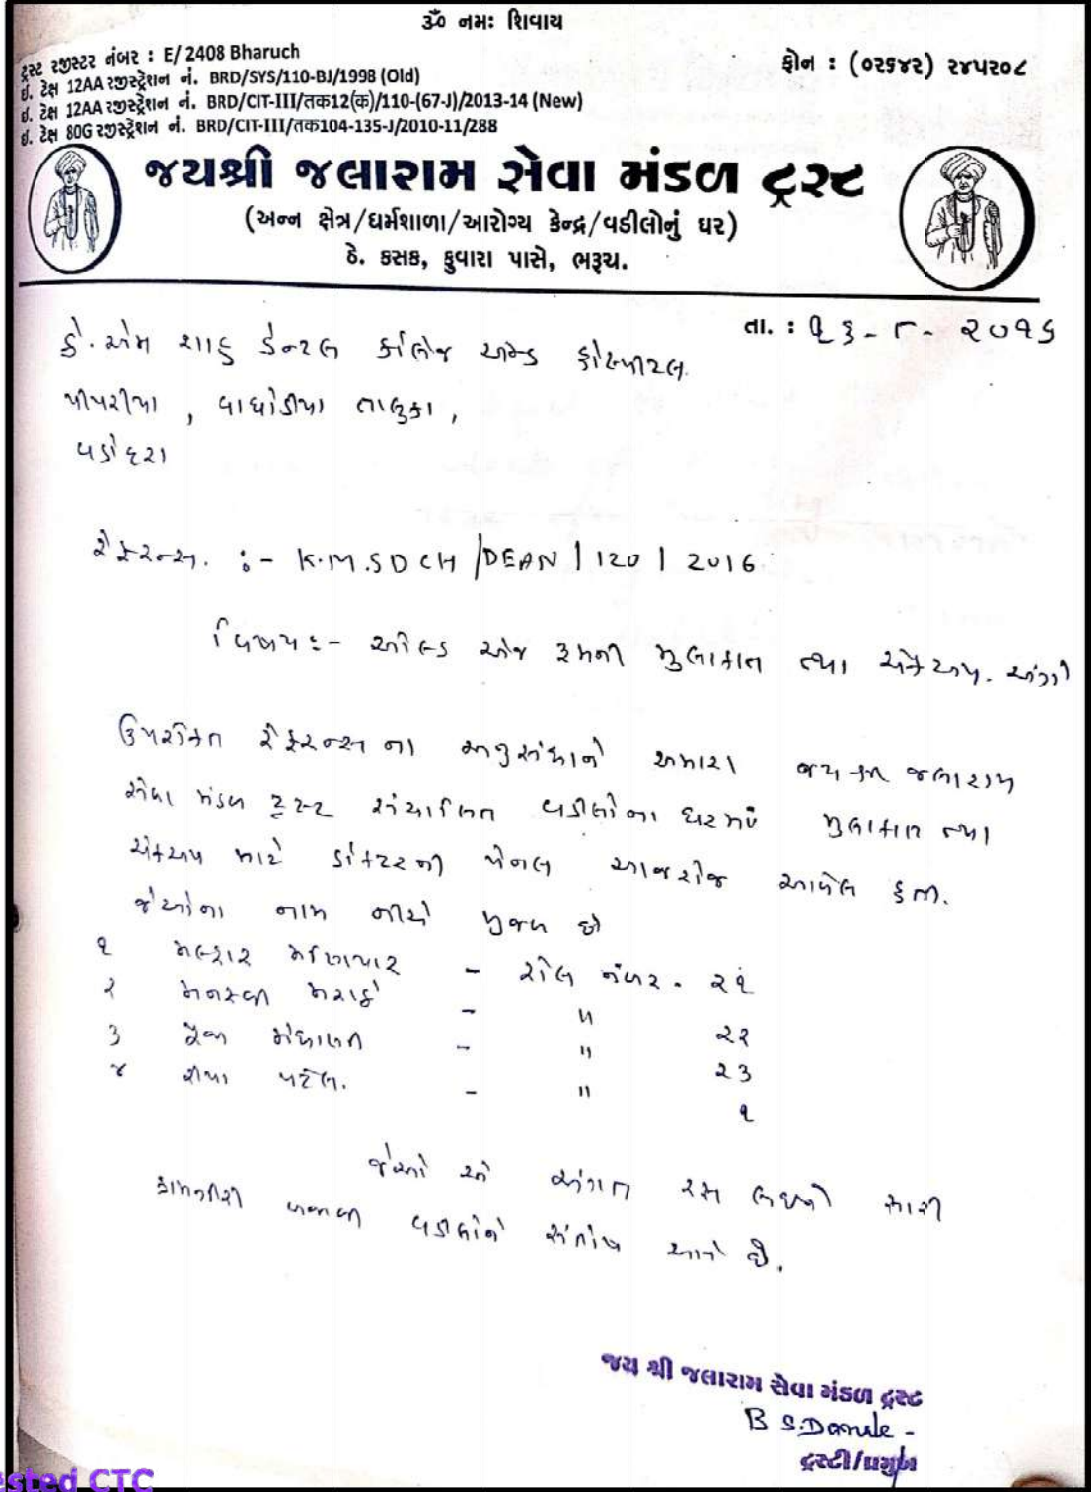 ૐ નમઃ શિવાય
ટ્રસ્ટ રજીસ્ટર નંબર : E/2408 Bharuch
ફોન : (૦૨૬૪૨) ૨૪૫૨૦૮
ઇ. ટેક્ષ 12AA રજીસ્ટ્રેશન નં. BRD/SYS/110-BJ/1998 (Old)
ઇ. ટેક્ષ 12AA રજીસ્ટ્રેશન નં. BRD/CIT-III/તક12(क)/110-(67-J)/2013-14 (New)
ઇ. ટેક્ષ 80G રજીસ્ટ્રેશન નં. BRD/CIT-III/તક104-135-J/2010-11/288
જયશ્રી જલારામ સેવા મંડળ ટ્રસ્ટ
(અન્ન ક્ષેત્ર/ધર્મશાળા/આરોગ્ય કેન્દ્ર/વડીલોનું ઘર)
ઠે. કસક, ફુવારા પાસે, ભરૂચ.
તા. : ૧૩-૮-૨૦૧૬
કે.એમ શાહ ડેન્ટલ કોલેજ એન્ડ હોસ્પીટલ
પીપરીયા, વાઘોડીયા તાલુકા,
વડોદરા
રેફરન્સ. :- K.M.SDCH/DEAN/120/2016
વિષય:- ઓલ્ડ એજ રૂમની મુલાકાત તથા ચેકઅપ. અંગે
ઉપરોક્ત રેફરન્સ ના અનુસંધાને અમારા જય શ્રી જલારામ
સેવા મંડળ ટ્રસ્ટ સંચાલિત વડીલોના ઘરમાં મુલાકાત તથા
ચેકઅપ માટે ડોક્ટરની પેનલ આજરોજ આવેલ હતી.
જેઓના નામ નીચે મુજબ છે
૧ મલ્હાર મણિયાર - રોલ નંબર. ૨૧
૨ મનસ્વી મરાઠે - " ૨૨
૩ - " ૨૩
૪ પટેલ. - " ૧
જેઓ એ અંગત રસ લઇને સારી
કામગીરી બજાવી વડીલોને સંતોષ આપે છે.
જય શ્રી જલારામ સેવા મંડળ ટ્રસ્ટ
ટ્રસ્ટી/પ્રમુખ
CTC